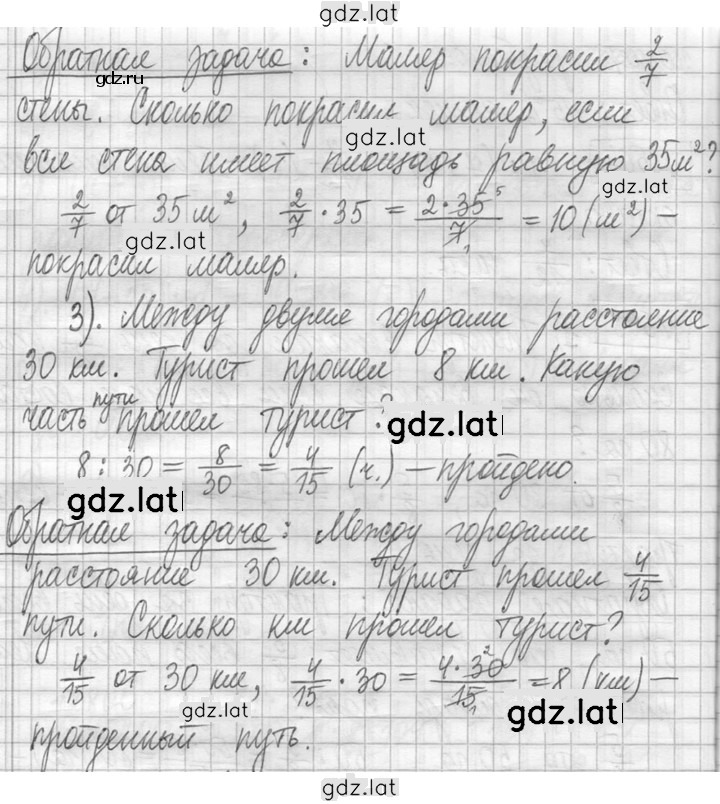 gdz.lat
Обратная задача: Маляр покрасил 2/7
gdz.ru
стены. Сколько покрасил маляр, если
gdz.lat
вся стена имеет площадь равную 35 м²?
gdz.lat
2/7 от 35 м², 2/7 · 35 = 2·35⁵/7₁ = 10 (м²) —
gdz.lat
покрасил маляр.
3). Между двумя городами расстояние
30 км. Турист прошел 8 км. Какую
часть пути прошел турист?
gdz.lat
8 : 30 = 8/30 = 4/15 (ч.) — пройдено.
gdz.lat
Обратная задача: Между городами
расстояние 30 км. Турист прошел 4/15
пути. Сколько км прошел турист?
4/15 от 30 км, 4/15 · 30 = 4·30²/15₁ = 8 (км) —
gdz.lat
gdz.lat
пройденный путь.
gdz.lat